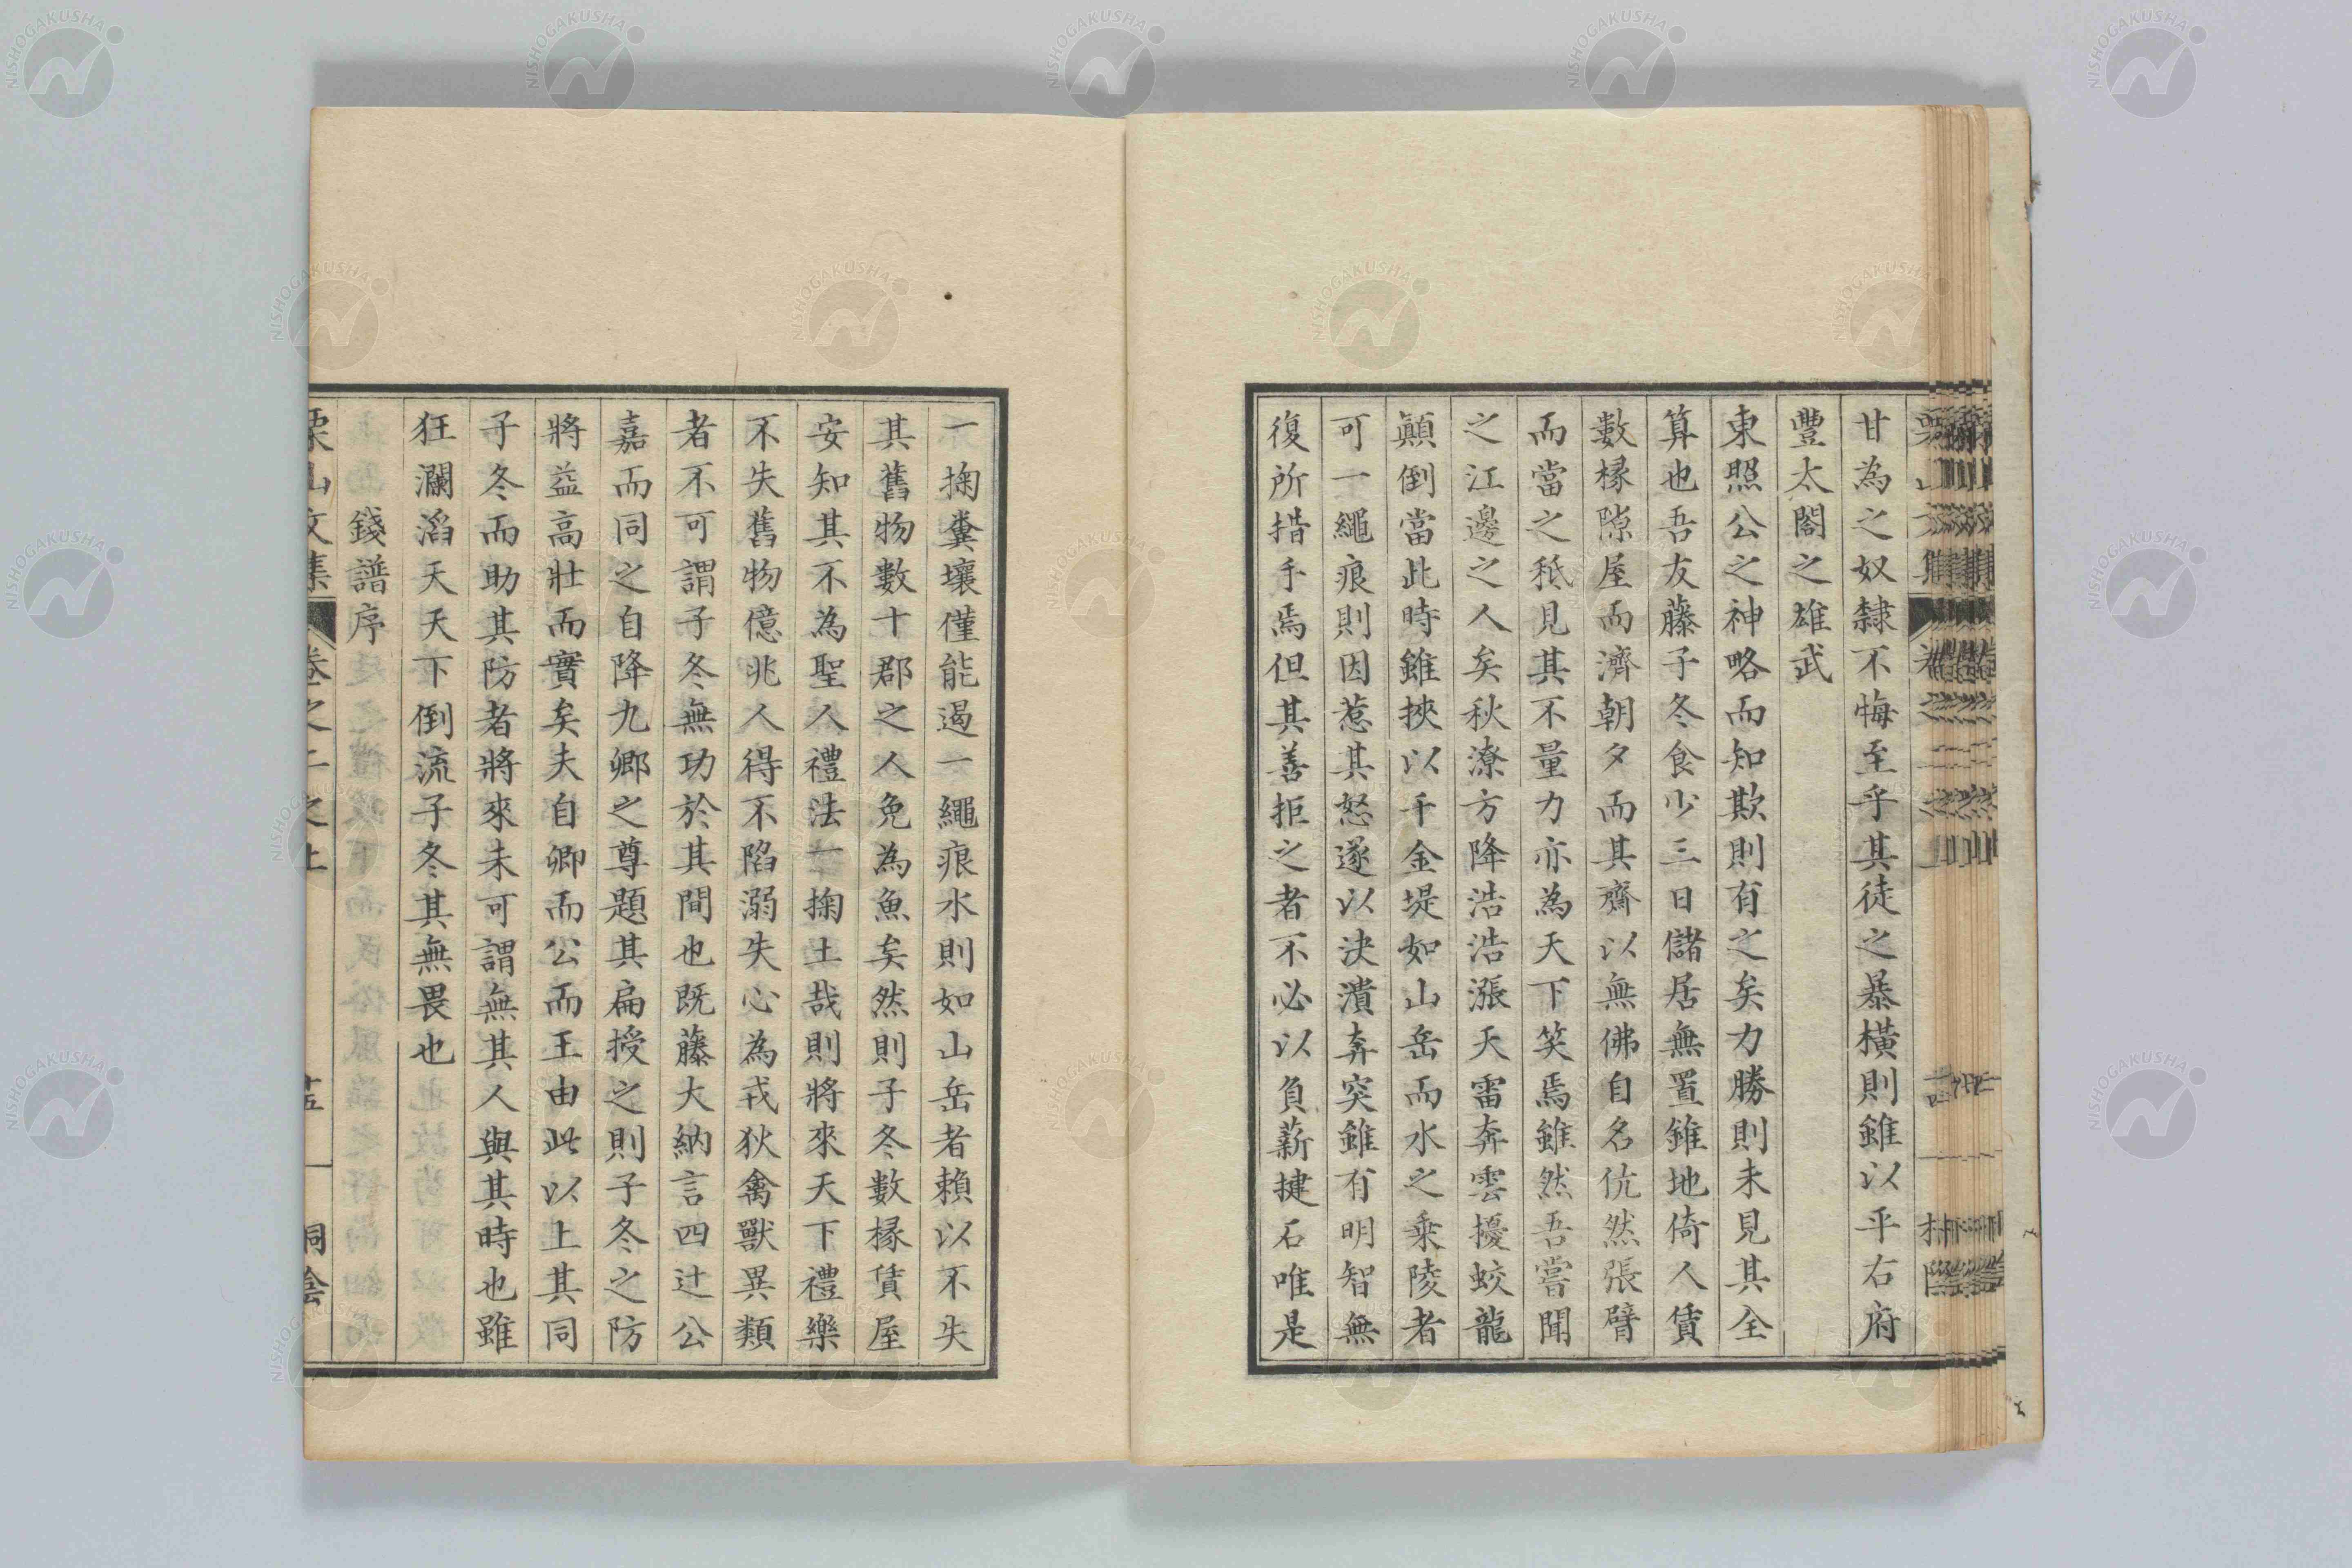 甘為之奴隸不悔至乎其徒之暴橫則雖以平右府
豐太閤之雄武
東照公之神略而知欺則有之矣力勝則未見其全
算也吾友藤子冬食少三日儲居無置錐地倚人賃
數椽隙屋而濟朝夕而其齊以無佛自名伉然張臂
而當之秖見其不量力亦為天下笑焉雖然吾嘗聞
之江邊之人矣秋潦方降浩浩漲天雷奔雲擾蛟龍
顛倒當此時雖挾以千金堤如山岳而水之乘陵者
可一繩痕則因惹其怒遂以決潰奔突雖有明智無
復所措手焉但其善拒之者不必以負薪揵石唯是
一掬糞壤僅能遏一繩痕水則如山岳者賴以不失
其舊物數十郡之人免為魚矣然則子冬數椽賃屋
安知其不為聖人禮法一掬土哉則將來天下禮樂
不失舊物億兆人得不陷溺失心為戎狄禽獸異類
者不可謂子冬無功於其間也既藤大納言四辻公
嘉而同之自降九卿之尊題其扁授之則子冬之防
將益高壯而實矣夫自卿而公而王由此以上其同
子冬而助其防者將來未可謂無其人與其時也雖
狂瀾滔天天下倒流子冬其無畏也
錢譜序
栗山文集 卷之二之上 十五 桐陰
NISHOGAKUSHA